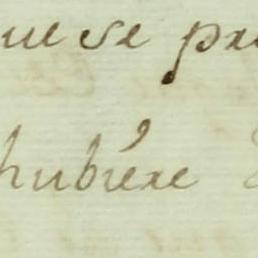 que se pre
hubiere